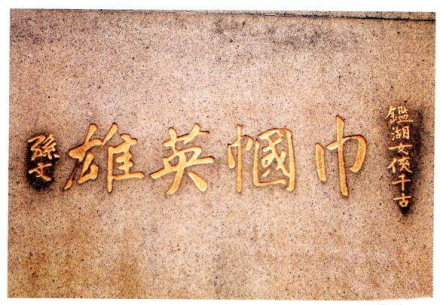 鑑湖女俠千古
巾幗英雄
孫文